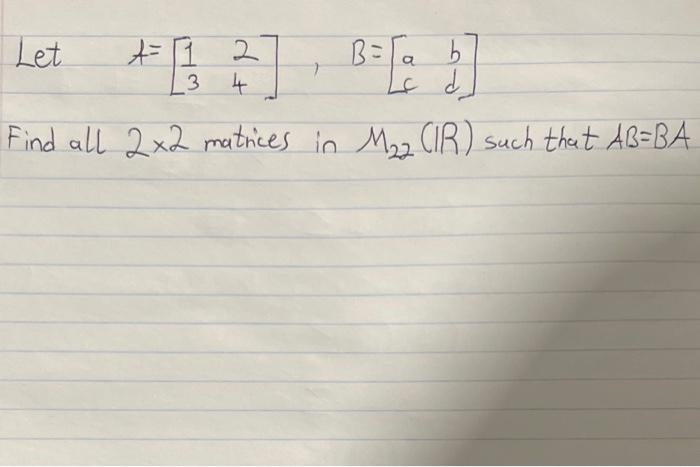 Let A = [1 2 3 4], B = [a b c d]
Find all 2x2 matrices in M22 (IR) such that AB=BA